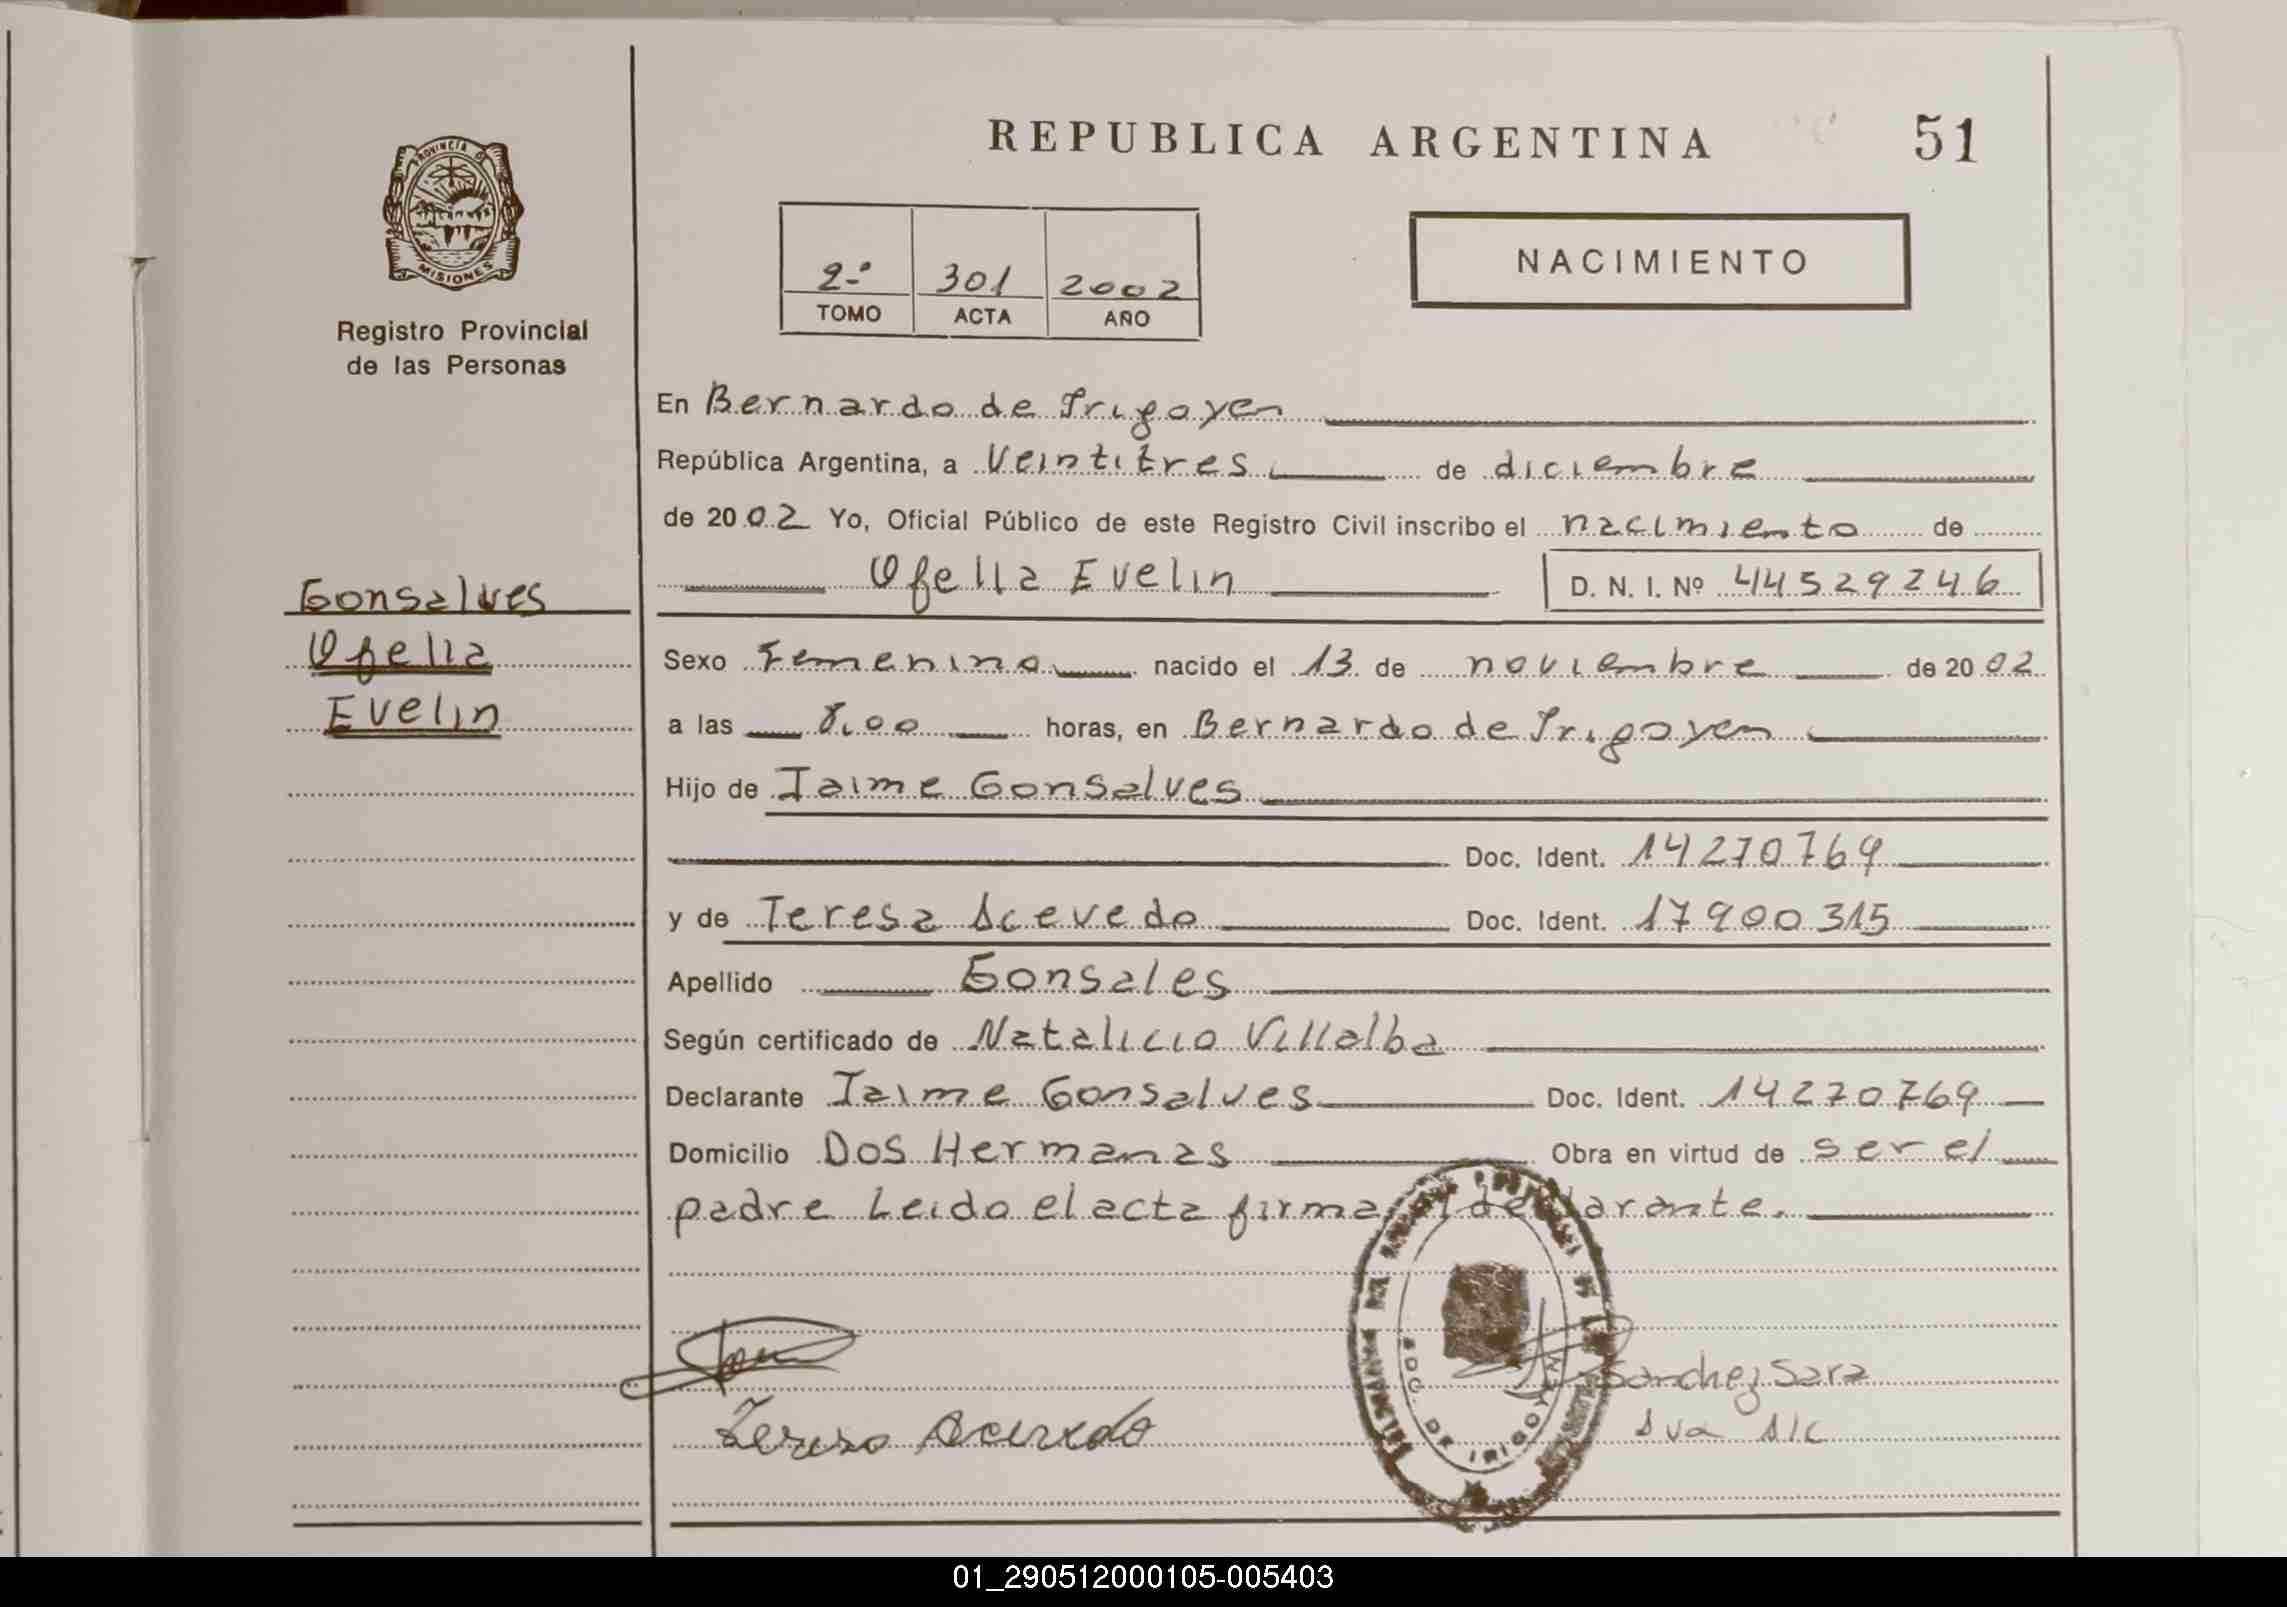 REPUBLICA ARGENTINA 51
PROVINCIA DE
MISIONES
Registro Provincial
de las Personas
2º 301 2002
TOMO ACTA AÑO
NACIMIENTO
En Bernardo de Irigoyen
República Argentina, a Veintitres de diciembre
de 2002 Yo, Oficial Público de este Registro Civil inscribo el nacimiento de
Ofelia Evelin D. N. I. Nº 44529246
Gonsalves
Ofelia
Evelin
Sexo Femenino nacido el 13 de noviembre de 2002
a las 8,00 horas, en Bernardo de Irigoyen
Hijo de Jaime Gonsalves
Doc. Ident. 14270769
y de Teresa Acevedo Doc. Ident. 17900315
Apellido Gonsales
Según certificado de Natalicio Villalba
Declarante Jaime Gonsalves Doc. Ident. 14270769
Domicilio Dos Hermanas Obra en virtud de ser el
padre Leido el acta firma el declarante.
BDO. DE IRIGOYEN
Sanchez Sara
Teresa Acevedo
01_290512000105-005403